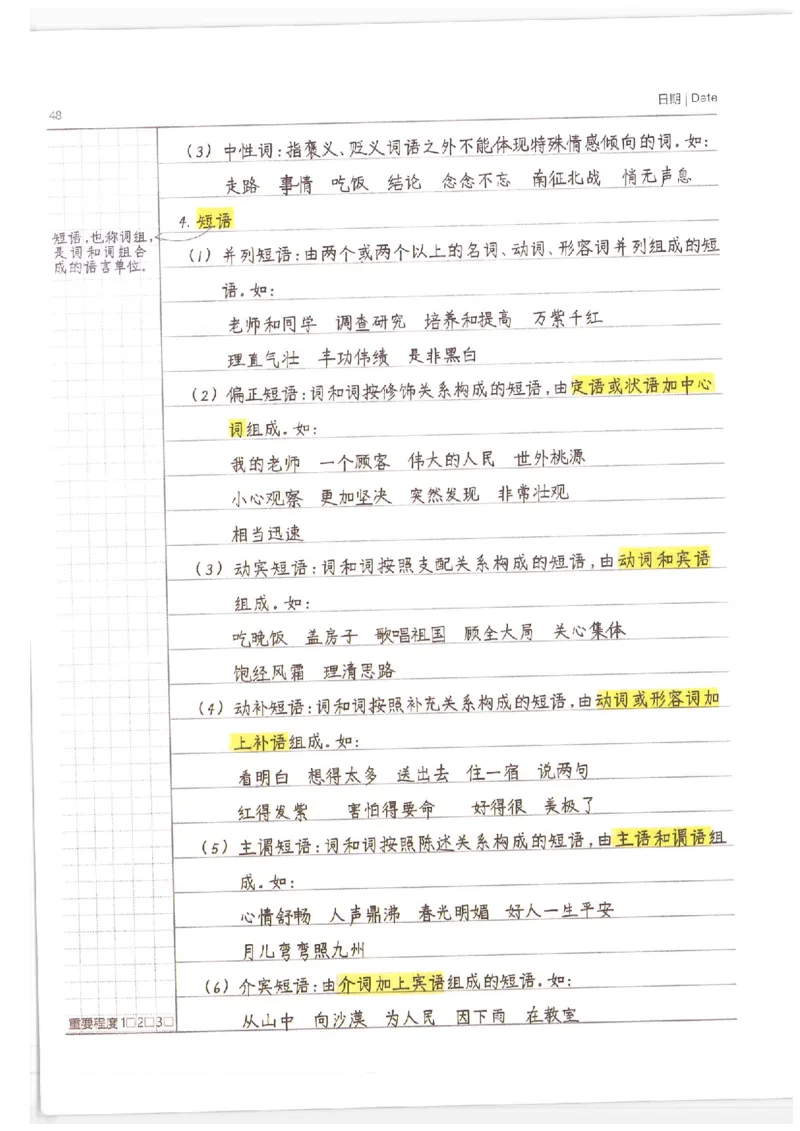 日期 | Date
48
(3) 中性词:指褒义、贬义词语之外不能体现特殊情感倾向的词。如:
走路 事情 吃饭 结论 念念不忘 南征北战 悄无声息
4. 短语
短语,也称词组,
是词和词组合
成的语言单位。
(1) 并列短语:由两个或两个以上的名词、动词、形容词并列组成的短
语。如:
老师和同学 调查研究 培养和提高 万紫千红
理直气壮 丰功伟绩 是非黑白
(2) 偏正短语:词和词按修饰关系构成的短语,由定语或状语加中心
词组成。如:
我的老师 一个顾客 伟大的人民 世外桃源
小心观察 更加坚决 突然发现 非常壮观
相当迅速
(3) 动宾短语:词和词按照支配关系构成的短语,由动词和宾语
组成。如:
吃晚饭 盖房子 歌唱祖国 顾全大局 关心集体
饱经风霜 理清思路
(4) 动补短语:词和词按照补充关系构成的短语,由动词或形容词加
上补语组成。如:
看明白 想得太多 送出去 住一宿 说两句
红得发紫 害怕得要命 好得很 美极了
(5) 主谓短语:词和词按照陈述关系构成的短语,由主语和谓语组
成。如:
心情舒畅 人声鼎沸 春光明媚 好人一生平安
月儿弯弯照九州
(6) 介宾短语:由介词加上宾语组成的短语。如:
从山中 向沙漠 为人民 因下雨 在教室
重要程度 1□2□3□